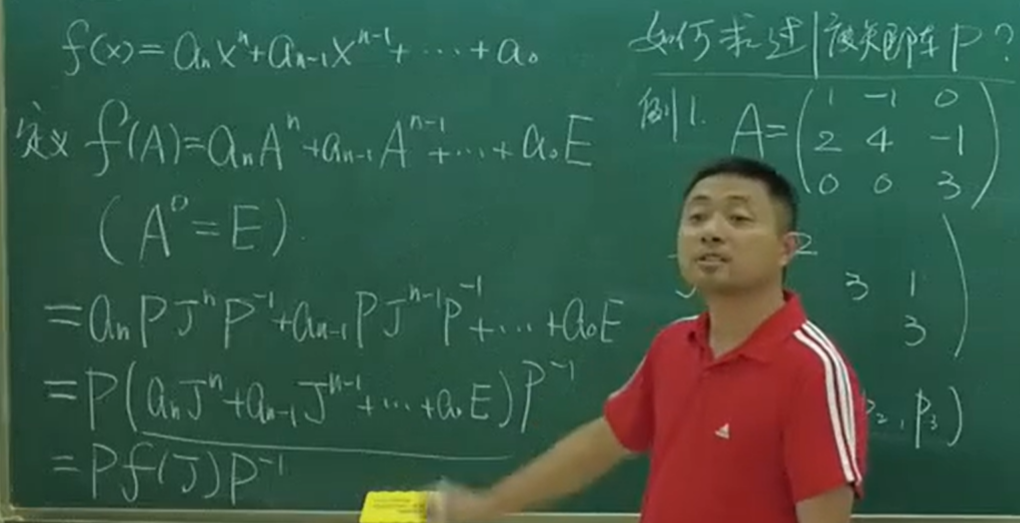 f(x)=aₙxⁿ+aₙ₋₁xⁿ⁻¹+⋯+a₀
定义 f(A)=aₙAⁿ+aₙ₋₁Aⁿ⁻¹+⋯+a₀E
(A⁰=E).
=aₙPJⁿP⁻¹+aₙ₋₁PJⁿ⁻¹P⁻¹+⋯+a₀E
=P(aₙJⁿ+aₙ₋₁Jⁿ⁻¹+⋯+a₀E)P⁻¹
=Pf(J)P⁻¹
如何求过渡矩阵P?
例1. A=
1 -1 0
2 4 -1
0 0 3
2
3 1
3
P₂,P₃)